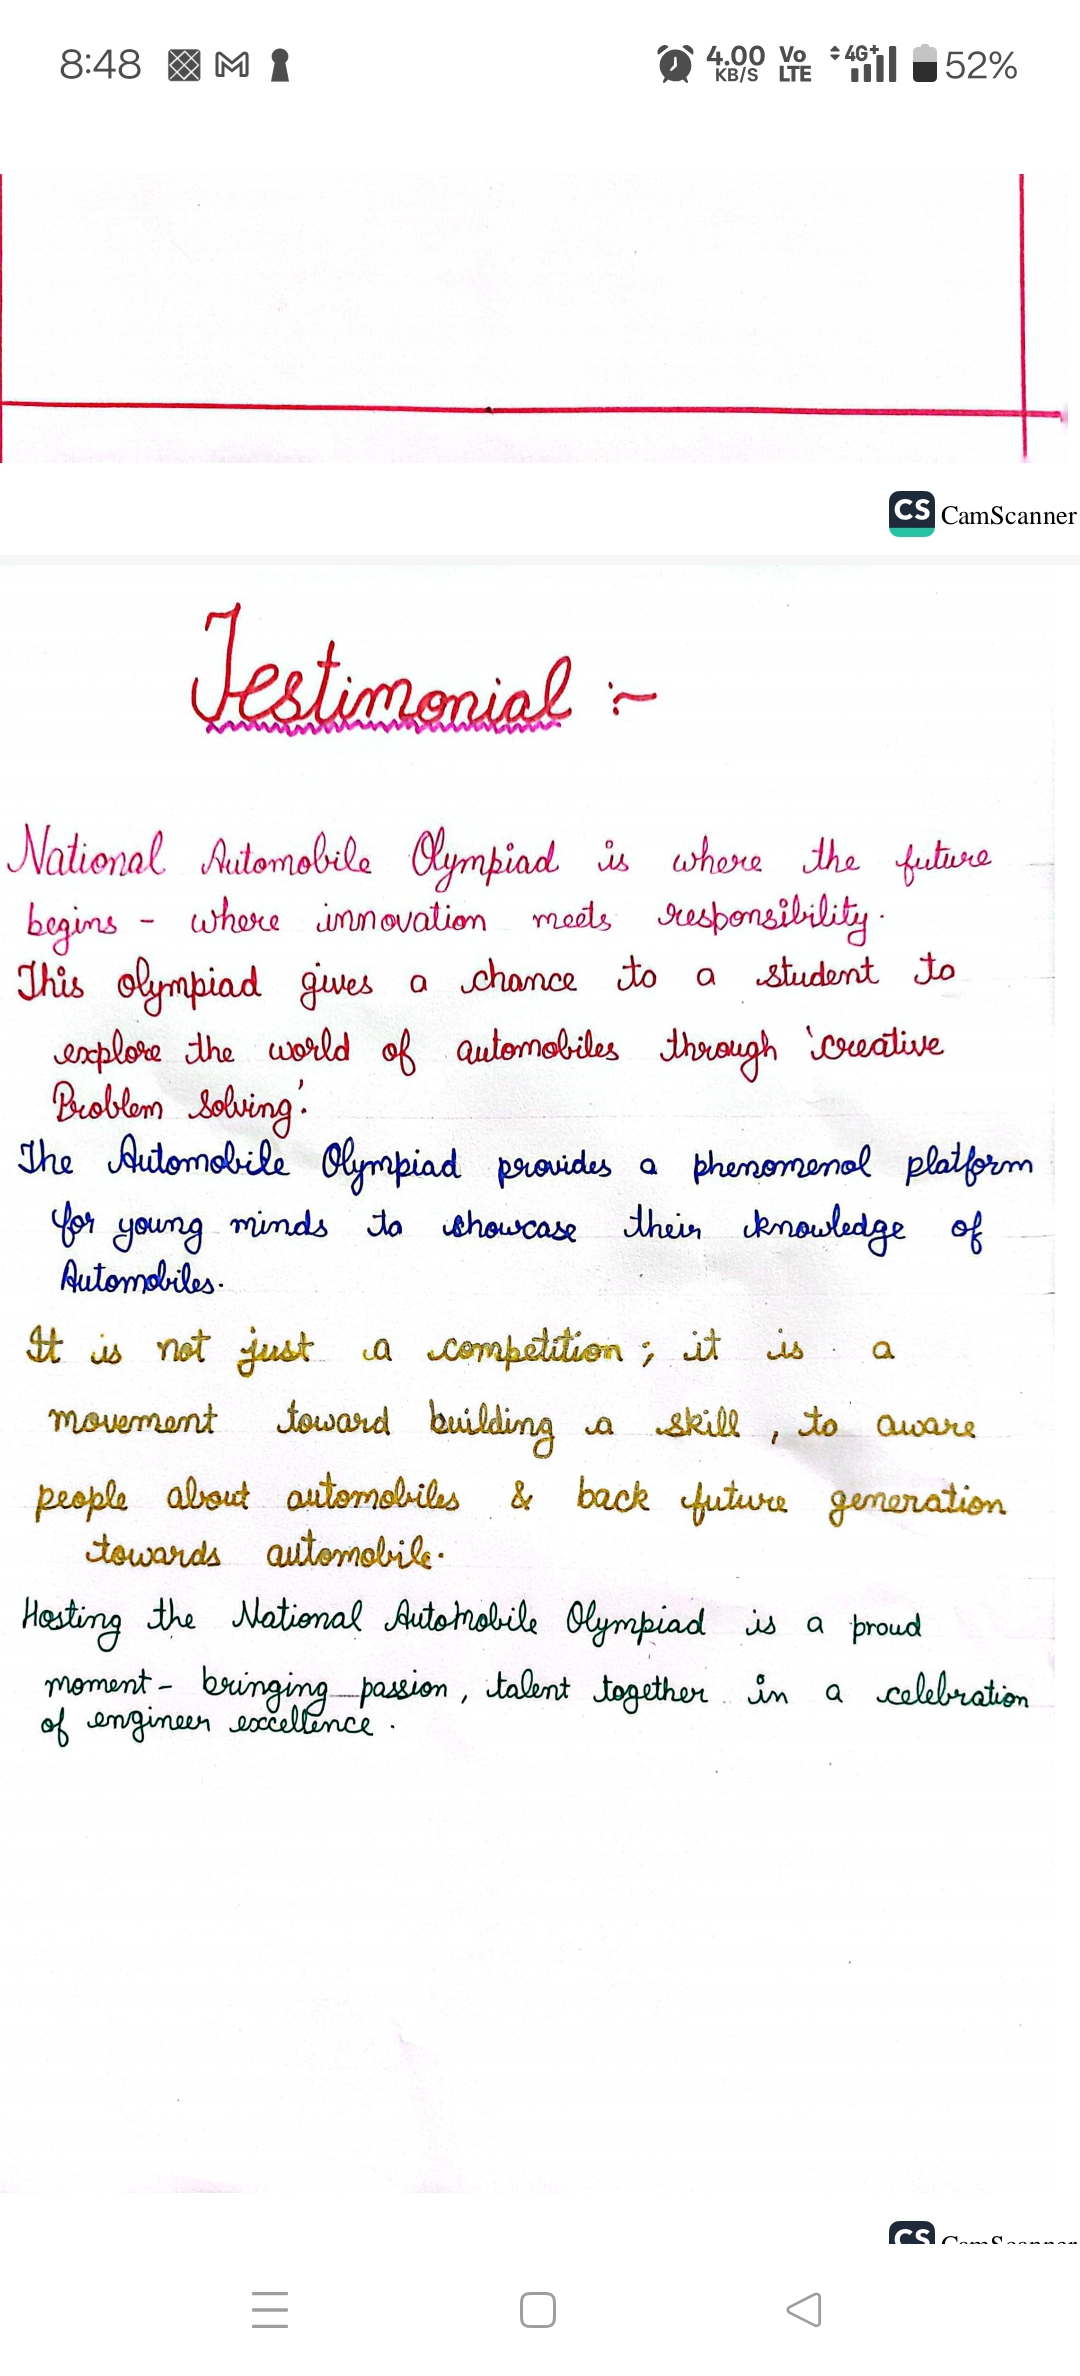 8:48 4.00 KB/S Vo LTE 4G+ 52%
CS CamScanner
Testimonial :-
National Automobile Olympiad is where the future
begins - where innovation meets responsibility.
This olympiad gives a chance to a student to
explore the world of automobiles through 'creative
Problem Solving'.
The Automobile Olympiad provides a phenomenal platform
for young minds to showcase their knowledge of
Automobiles.
It is not just a competition ; it is a
movement toward building a skill , to aware
people about automobiles & back future generation
towards automobile.
Hosting the National Automobile Olympiad is a proud
moment - bringing passion, talent together in a celebration
of engineer excellence .
CS CamScanner